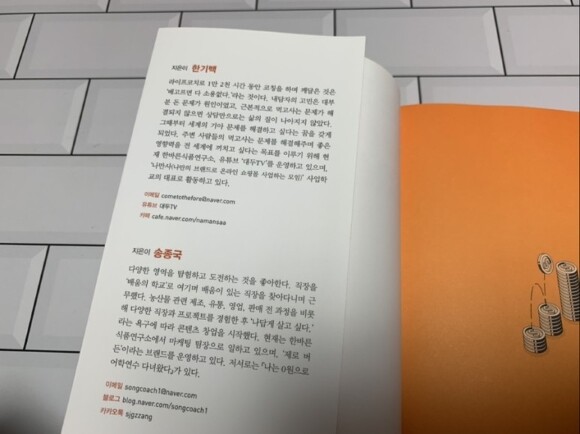 지은이 한기백
라이프코치로 1만 2천 시간 동안 코칭을 하며 깨달은 것은
'배고프면 다 소용없다.'라는 것이다. 내담자의 고민은 대부
분 돈 문제가 원인이었고, 근본적으로 먹고사는 문제가 해
결되지 않으면 상담만으로는 삶의 질이 나아지지 않았다.
그때부터 세계의 기아 문제를 해결하고 싶다는 꿈을 갖게
되었다. 주변 사람들의 먹고사는 문제를 해결해주며 좋은
영향력을 전 세계에 끼치고 싶다는 목표를 이루기 위해 현
재 한바른식품연구소, 유튜브 '대두TV'를 운영하고 있으며,
'나만사(나만의 브랜드로 온라인 쇼핑몰 사업하는 모임)' 사업학
교의 대표로 활동하고 있다.
이메일 cometothefore@naver.com
유튜브 대두TV
카페 cafe.naver.com/namansaa
지은이 송종국
다양한 영역을 탐험하고 도전하는 것을 좋아한다. 직장을
'배움의 학교'로 여기며 배움이 있는 직장을 찾아다니며 근
무했다. 농산물 관련 제조, 유통, 영업, 판매 전 과정을 비롯
해 다양한 직장과 프로젝트를 경험한 후 '나답게 살고 싶다.'
라는 욕구에 따라 콘텐츠 창업을 시작했다. 현재는 한바른
식품연구소에서 마케팅 팀장으로 일하고 있으며, '제로 버
든'이라는 브랜드를 운영하고 있다. 저서로는 『나는 0원으로
어학연수 다녀왔다』가 있다.
이메일 songcoach1@naver.com
블로그 blog.naver.com/songcoach1
카카오톡 sjgzzang